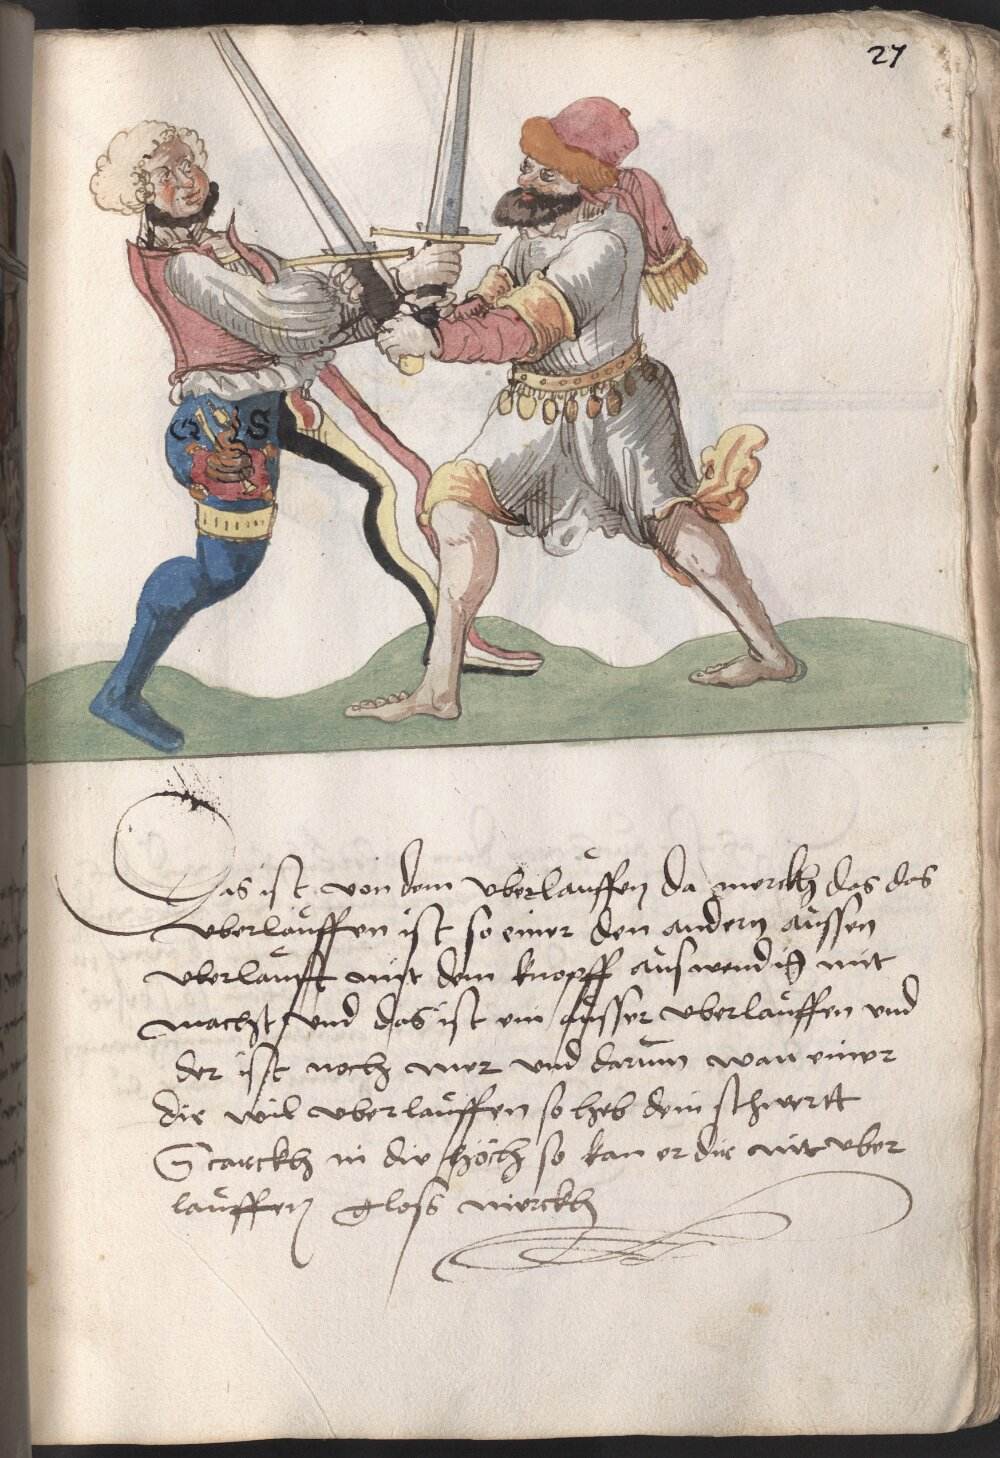 27
G S
Das ist von dem vberlauffen da merckh das das
vberlauffen ist so einer den andern aussen
vberlaufft mit dem knopff auswendig mit
macht vnd das ist ein ausser vberlauffen vnd
der ist noch mer vnd darum wan einer
die wil vberlauffen so heb dein schwertt
Starckh in die höch so kan er dir nit vber
lauffen gloss merckh